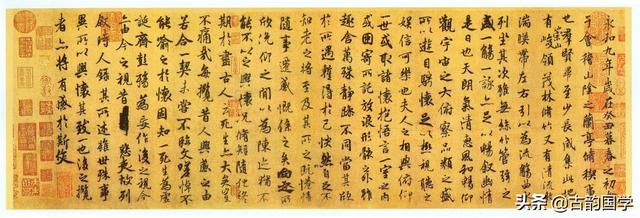 永和九年歲在癸丑暮春之初會
于會稽山陰之蘭亭脩稧事
也羣賢畢至少長咸集此地
有崇山峻領茂林脩竹又有清流激
湍暎帶左右引以為流觴曲水
列坐其次雖無絲竹管弦之
盛一觴一詠亦足以暢敘幽情
是日也天朗氣清惠風和暢仰
觀宇宙之大俯察品類之盛
所以遊目騁懷足以極視聽之
娛信可樂也夫人之相與俯仰
一世或取諸懷抱悟言一室之內
或因寄所託放浪形骸之外雖
趣舍萬殊靜躁不同當其欣
於所遇蹔得於己怏然自足不
知老之將至及其所之既惓情
隨事遷感慨係之矣向之所
欣俛仰之閒以為陳迹猶不
能不以之興懷況脩短隨化終
期於盡古人云死生亦大矣豈
不痛哉每攬昔人興感之由
若合一契未嘗不臨文嗟悼不
能喻之於懷固知一死生為虛
誕齊彭殤為妄作後之視今
亦由今之視昔悲夫故列
敘時人錄其所述雖世殊事
異所以興懷其致一也後之攬
者亦將有感於斯文
头条 @古韵国学